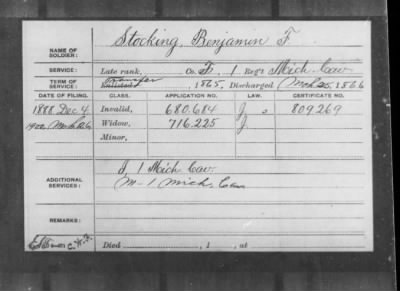 NAME OF SOLDIER: Stocking, Benjamin F.
SERVICE: Late rank, Co. F, 1 Reg't Mich Cav.
TERM OF SERVICE: Transfer Enlisted 1865, Discharged Mch 25, 1866
DATE OF FILING. CLASS. APPLICATION NO. LAW. CERTIFICATE NO.
1888 Dec 4 Invalid, 680.684 J. 809.269
1900, Mch Widow, 716.225 J.
Minor,
ADDITIONAL SERVICES: J 1 Mich Cav.
M-1 Mich, Cav
REMARKS:
C. W. F. Died , 1 , at